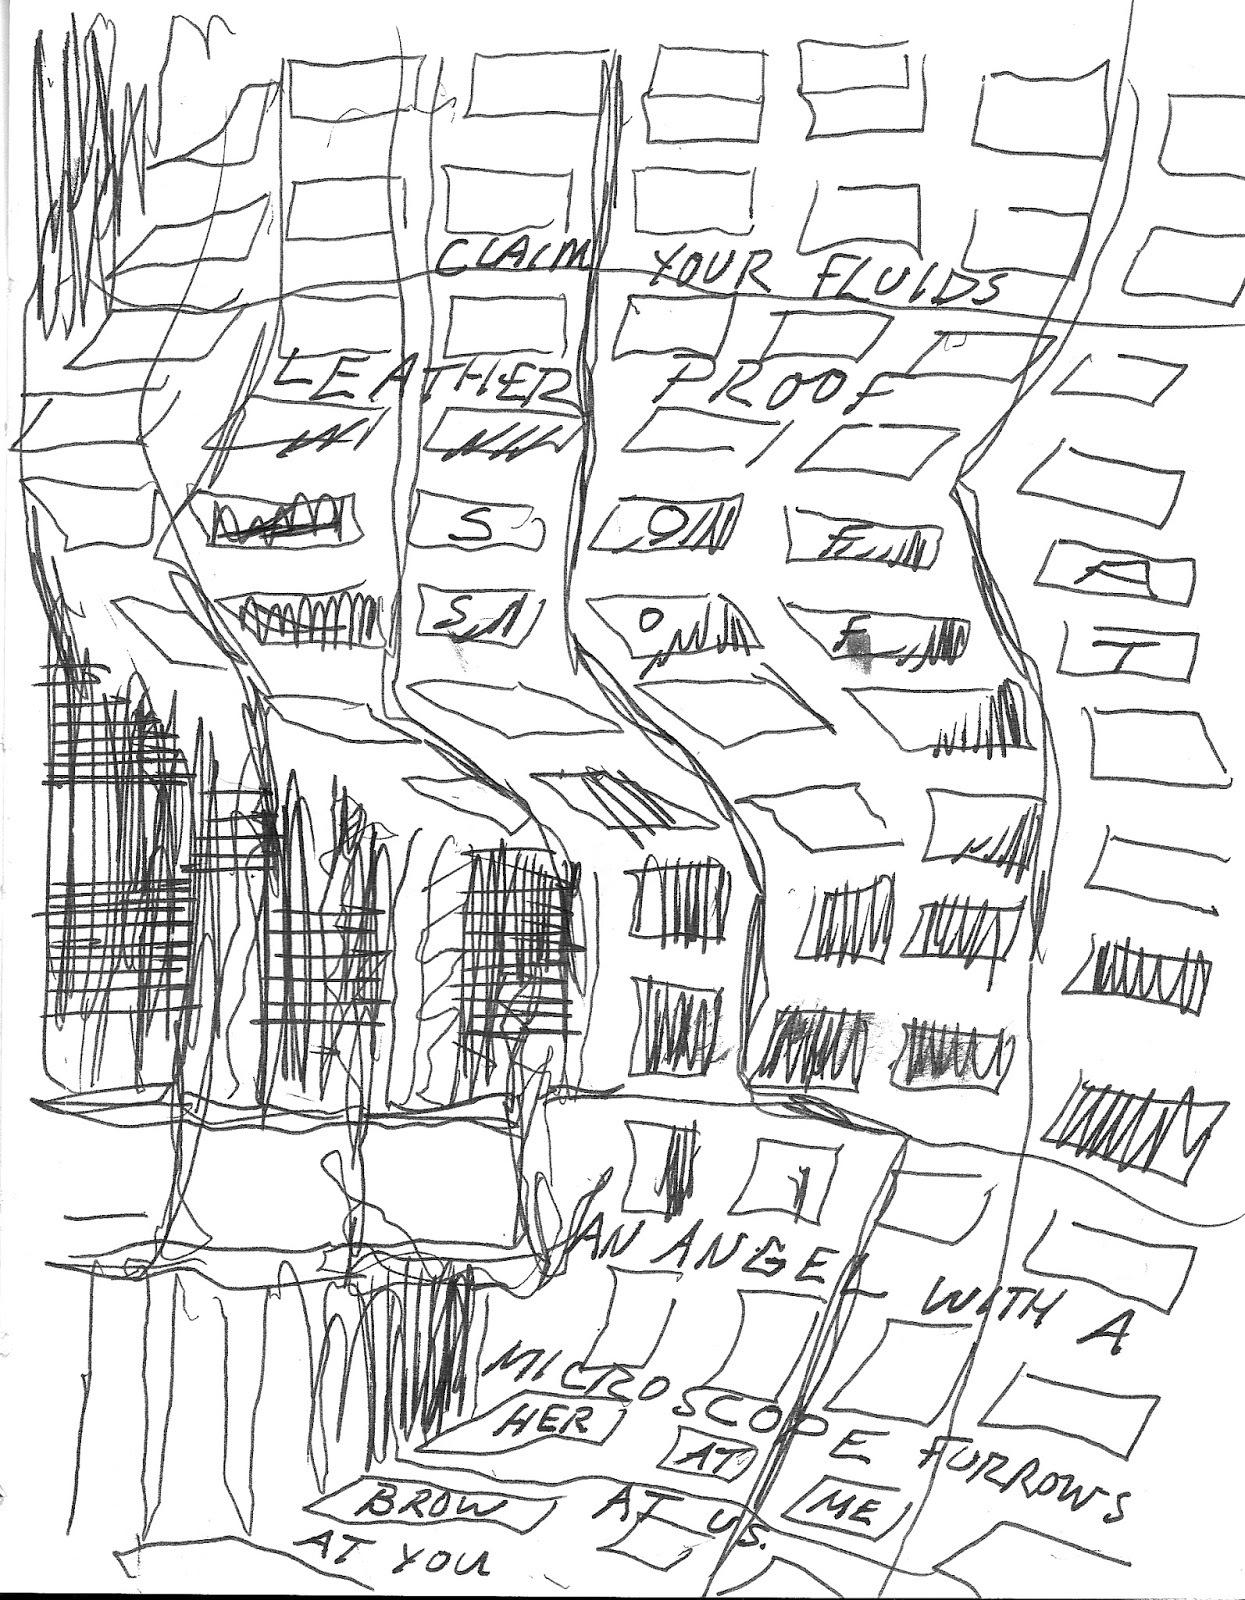 CLAIM YOUR FLUIDS
LEATHER PROOF
S O F A
S O F T
AN ANGEL WITH A
MICROSCOPE FURROWS
HER AT
BROW AT US. ME
AT YOU